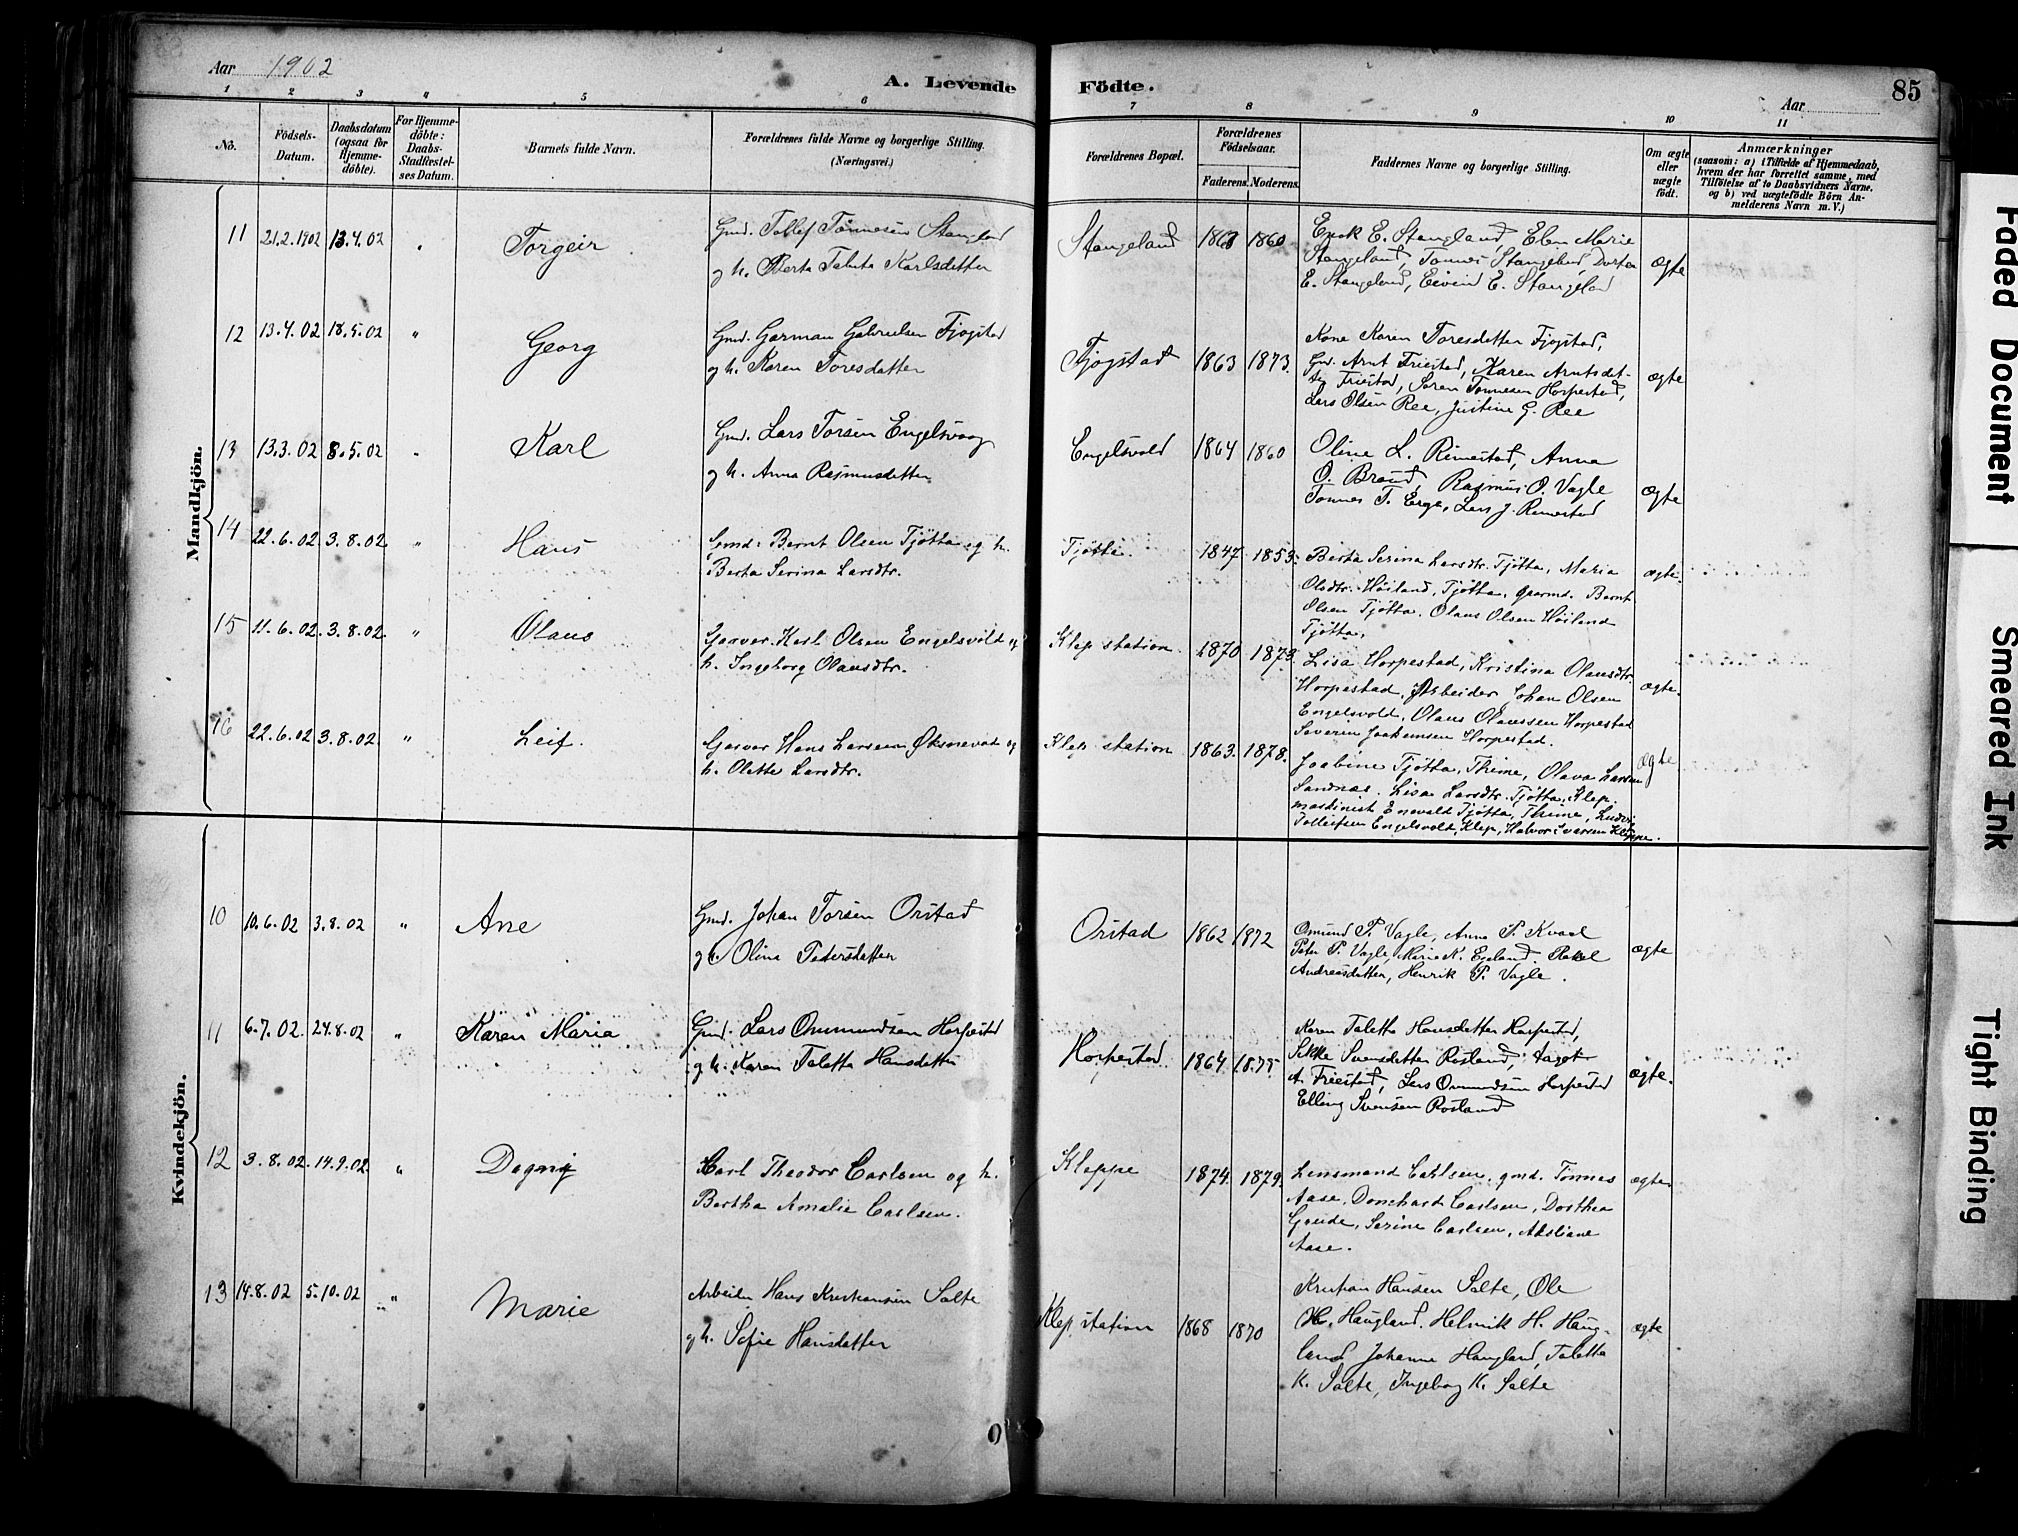 Aar 1902
A. Levende Födte.
Aar
85
1 2 3 4 5 6 7 8 9 10 11
No.
Födsels-Datum.
Daabsdatum (ogsaa for Hjemme-döbte).
For Hjemme-döbte: Daabs-Stadfæstel-ses Datum.
Barnets fulde Navn.
Forældrenes fulde Navne og borgerlige Stilling. (Næringsvei.)
Forældrenes Bopæl.
Forældrenes Födselsaar.
Faderens. Moderens.
Faddernes Navne og borgerlige Stilling.
Om ægte eller uægte födt.
Anmærkninger
(saasom: a) i Tilfælde af Hjemmedaab,
hvem der har forrettet samme, med
Tilföielse af to Daabsvidners Navne,
og b) ved uægtefödte Börn An-
melderens Navn m. V.)
Mandkjön.
11 21.2.1902 13.4.02 " Torgeir
Gmd. Tollef Tönnesen Stangland
og h. Berta Taleta Karlsdatter
Stangeland 1860
Stangeland, Tönnes Stangeland, Dortea
E. Stangeland, Eivind E. Stangeland
ægte
12 13.4.02 18.5.02 " Georg
Gmd. Garman Gabrielsen Fjogstad
og h. Karen Toresdatter
Fjogstad 1863 1873.
Kone Karen Toresdatter Fjogstad,
Gmd. Arnt Friestad, Karen Arntsdat-
ter Friestad, Sören Tönnesen Horpestad,
Lars Olsen Ree, Justine G. Ree
ægte
13 13.3.02 8.5.02 " Karl
Gmd. Lars Torsen Engelsvaag
og h. Anna Rasmusdatter
Engelsvold 1864 1860
Oline L. Rimestad, Anna
O. Braud, Rasmus O. Vagle
Tönnes T. Erga, Lars J. Rimestad
ægte
14 22.6.02 3.8.02 " Hans
Gmd. Bernt Olsen Tjötta og h.
Berta Serina Larsdtr.
Tjötta. 1847 1853.
Berta Serina Larsdtr. Tjötta, Maria
Olsdtr. Höiland, Tjötta, Gaarmd. Bernt
Olsen Tjötta. Olaus Olsen Höiland
Tjötta.
ægte.
15 11.6.02 3.8.02. " Olaus
Gaarver. Karl Olsen Engelsvold og
h. Ingeborg Olausdtr.
Klep station. 1870 1873.
Lisa Horpestad, Kristina Olausdtr.
Horpestad, Arbeider Johan Olsen
Engelsvold, Olaus Olaussen Horpestad
Severin Joakimsen Horpestad.
ægte.
16 22.6.02 3.8.02. " Leif.
Garver Hans Larsen Øksnevad og
h. Olette Larsdtr.
Klep station 1863. 1878.
Joabine Tjötta, Thime, Olava Larsen
Sandnæs. Lisa Larsdtr. Tjötta, Klep.
maskinist Enevald Tjötta, Thime,
Tolleifsen Engelsvold Klep, Halvor Ivarsen Kleppe.
ægte
Kvindekjön.
10 10.6.02 3.8.02 " Ane
Gmd. Johan Torsen Orstad
og h. Olina Pedersdatter
Orstad 1862 1872
Omund P. Vagle, Anna P. Kvaal
Peter P. Vagle, Marie K. Egeland. Rakel
Andreasdatter, Henrik P. Vagle.
ægte
11 6.7.02. 24.8.02 " Karen Maria
Gmd. Lars Ommundsen Horpestad
og h. Karen Taletta Hansdatter
Horpestad 1864 1875
Karen Taletta Hansdatter Horpestad,
Sikke Svensdatter Rosland, Aagot
A. Friestad, Lars Ommundsen Horpestad
Elling Svensen Rosland
ægte.
12 3.8.02. 14.9.02. " Dagny
Carl Theodor Carlsen og h.
Bertha Amalie Carlsen.
Kleppe 1874. 1879.
Lensmand Carlsen, gmd. Tönnes
Aase, Donchard Carlsen, Dorthea
Grude, Serine Carlsen,
Aase.
ægte
13 14.8.02 5.10.02 " Marie
Arbeider Hans Kristiansen Salte
og h. Sofie Hansdatter
Klep station 1868 1870
Kristian Hansen Salte, Ole
H. Haugland, Helmik H. Haug-
land, Johanne Haugland, Taletta
K. Salte, Ingeborg K. Salte
ægte
Faded Document
Smeared Ink
Tight Binding